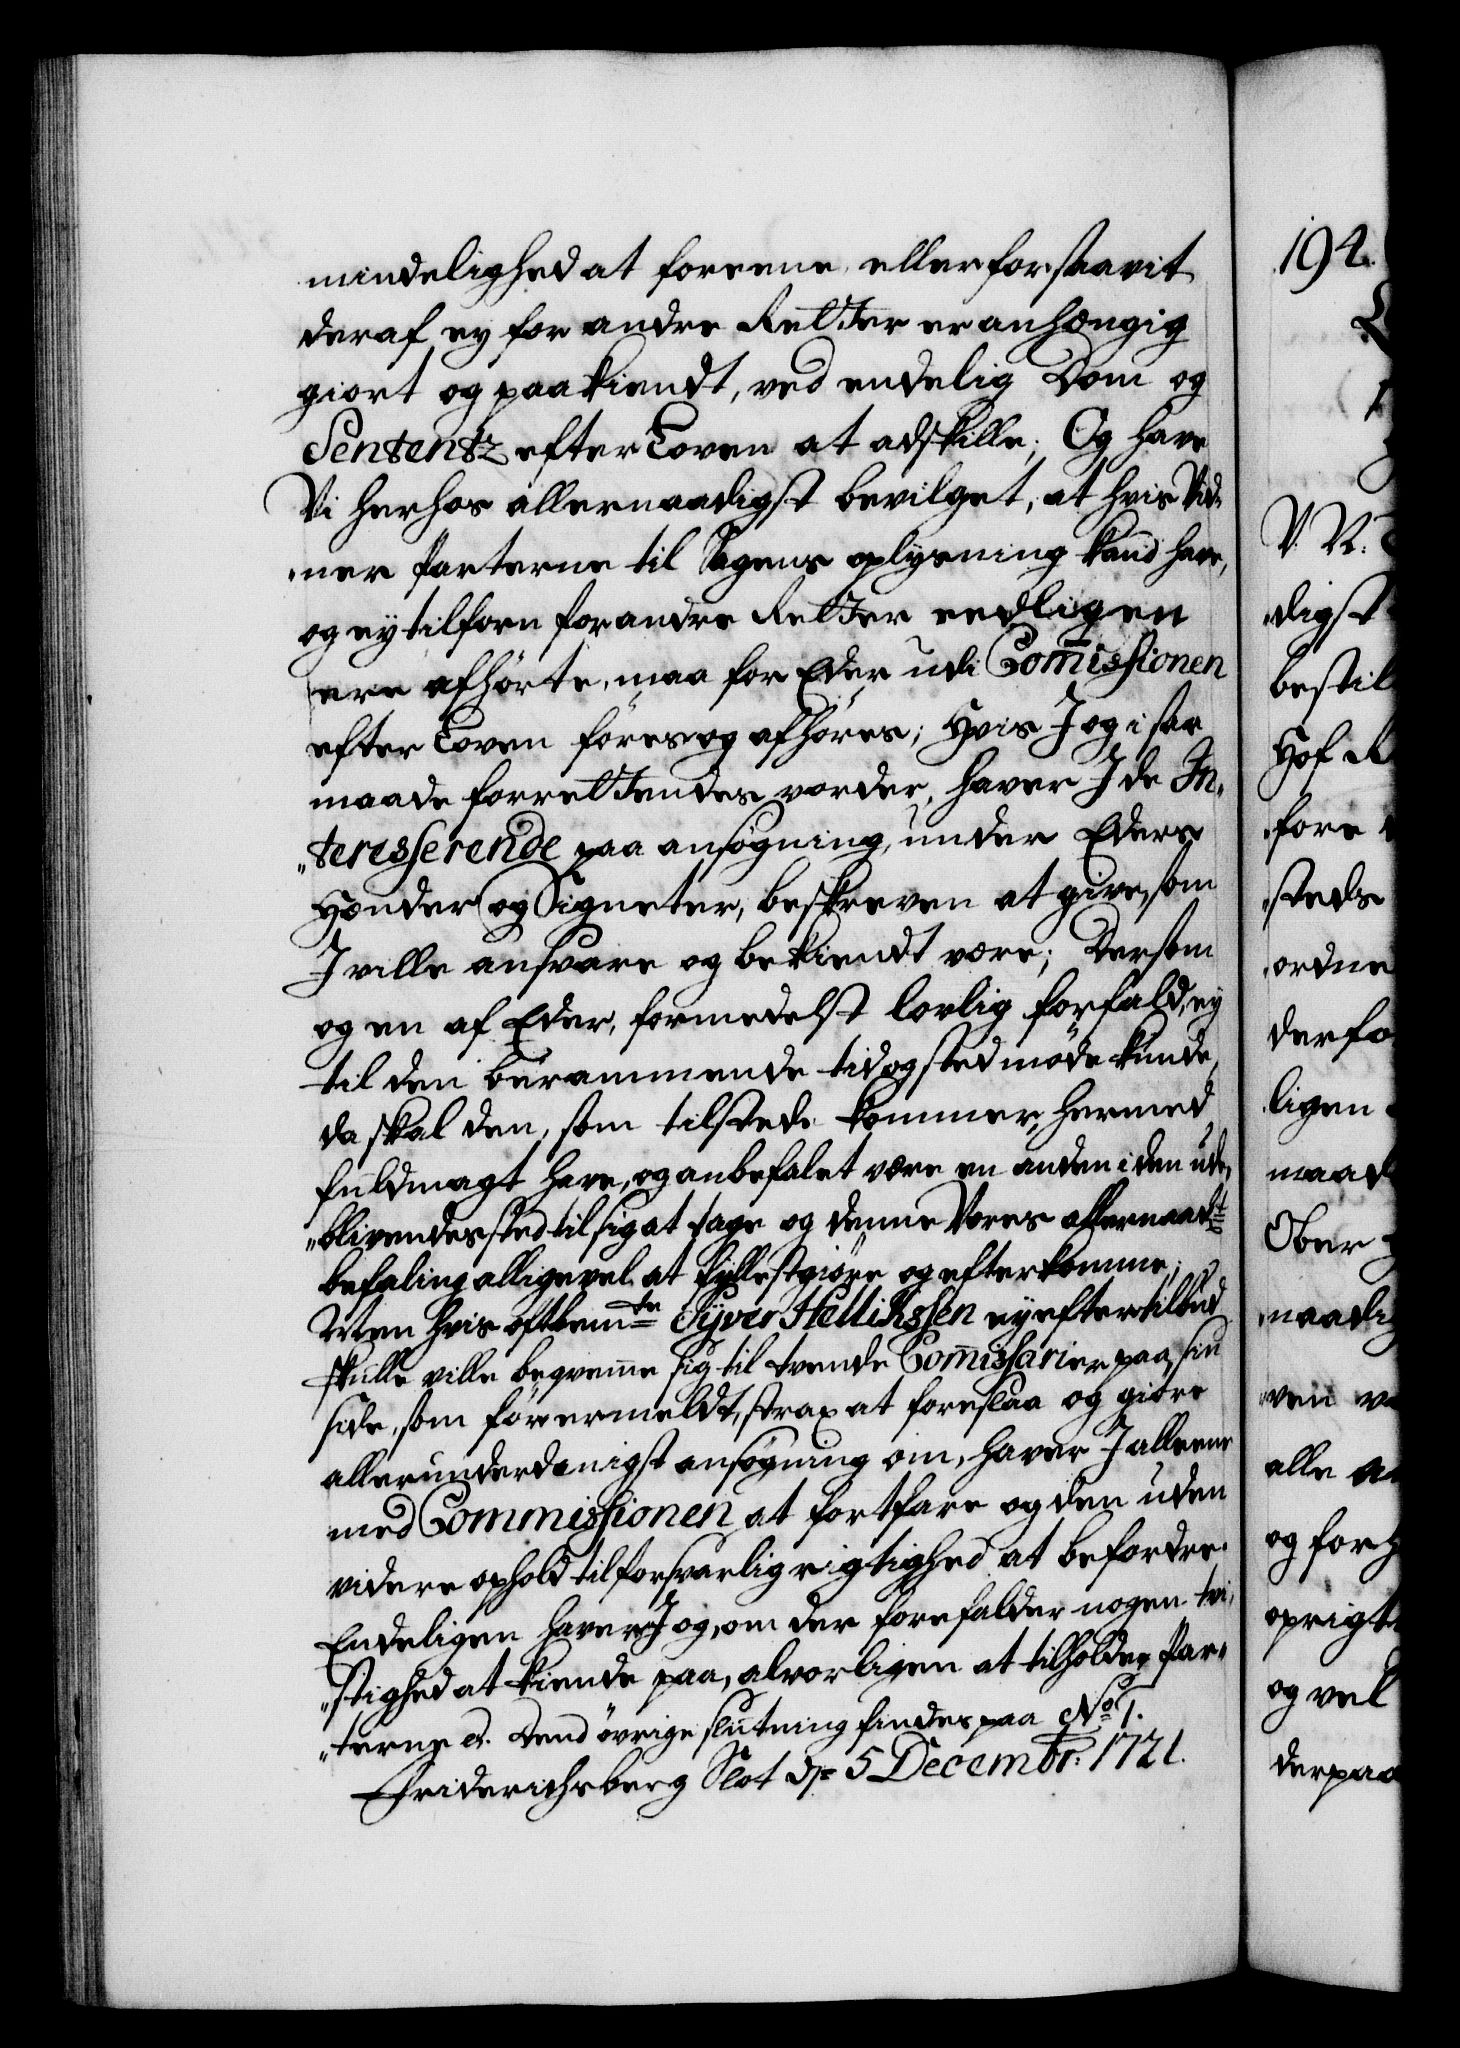 mindelighed at foreene, eller forsaavit
deraf ey for andre Retter er anhængig
giort og paakiendt, ved endelig Dom og
Sententz efter Loven at adskille; Og have
Vi herhos allernaadigst bevilget, at hvis Vid„
„ner Parterne til Sagens oplysning kand have,
og ey tilforn for andre Retter eedligen
ere afhørte, maa for Eder udi Com̅issionen
efter Loven føres og afhøres; Hvis I og i saa
maade forrettendes vorder, haver I de In„
„teresserende paa ansøgning, under Eders
Hænder og Signeter, beskreven at give, som
I ville ansvare og bekiendt være; Dersom
og en af Eder, formedelst lovlig forfald, ey
til den berammende tid og sted møde kunde,
da skal den, som tilstede kommer, hermed
fuldmagt have, og anbefalet være en anden i den ude„
„blivendes sted til sig at tage og denne Vores allernaadste
befaling alligevel at fyllestgiøre og efterkomme;
Men hvis oftbemte Syver Hellikssen ey efter tilbud
skulle ville beqvem̅e sig til tvende Com̅issarier paa sin
side, som før ermeldt, strax at foreslaa og giøre
allerunderdanigst ansøgning om, haver I alleene
med Commissionen at fortfare og den uden
videre ophold til forsvarlig rigtighed at befordre.
Endeligen haver I og, om der forefalder nogen tvi„
„stighed at kiende paa, alvorligen at tilholde Par„
„terne &. Dend øvrige slutning findes paa No 1.
Friderichsberg Slot d. 5 Decembr: 1721.
194.
V. N:
„digst
bestil
Hof R
„fore
„steds
„ordne
derfo
ligen
maad
Ober
„naadig
„ven
alle
og for
oprigt
og vel
derpaa